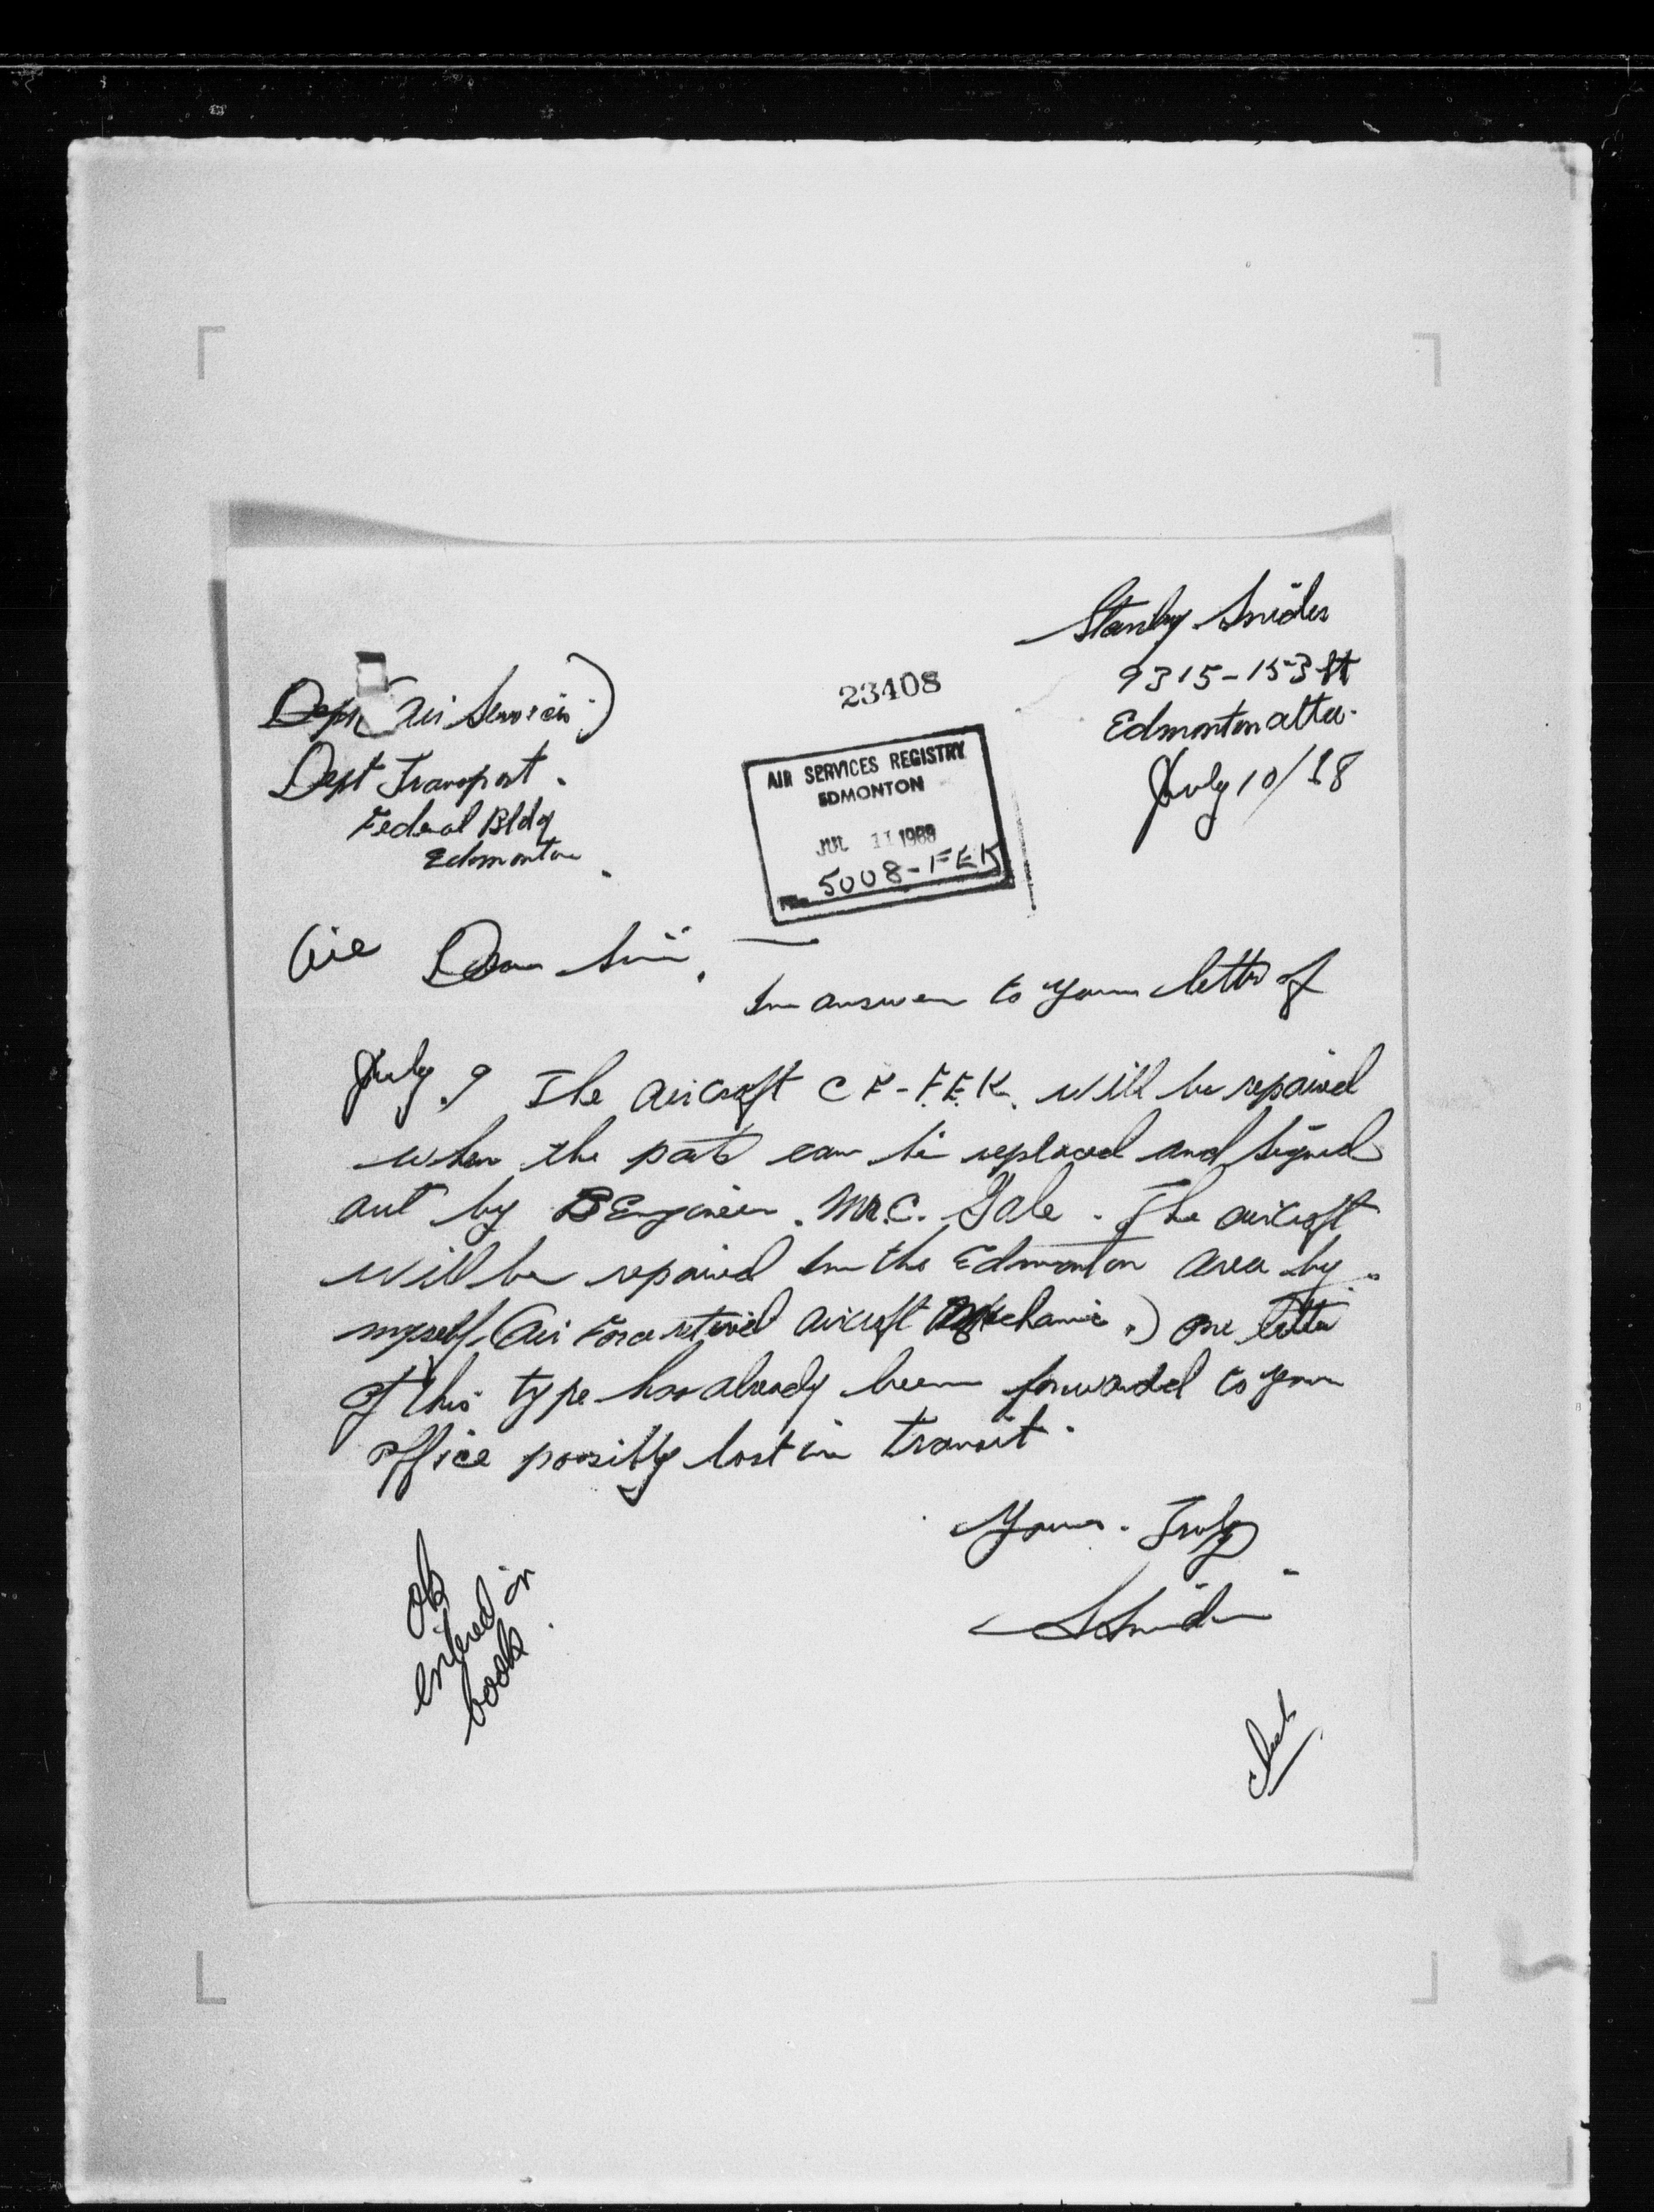 Stanley Snider
9315-153 St
Edmonton Alta.
July 10/68
Dept (Air Services)
Dept Transport.
Federal Bldg
Edmonton.
23408
AIR SERVICES REGISTRY
EDMONTON
JUL 11 1968
FILE 5008-FEK
Dear Sir.
In answer to your letter of
July 9 The aircraft CF-F.E.K. will be repaired
when the parts can be replaced and signed
out by B Engineer. Mr. C. Gale. The aircraft
will be repaired in the Edmonton area by
myself (Air Force retired aircraft mechanic.) One letter
of this type has already been forwarded to your
office possibly lost in transit.
Yours. Truly
S Snider
ok
entered in
book.